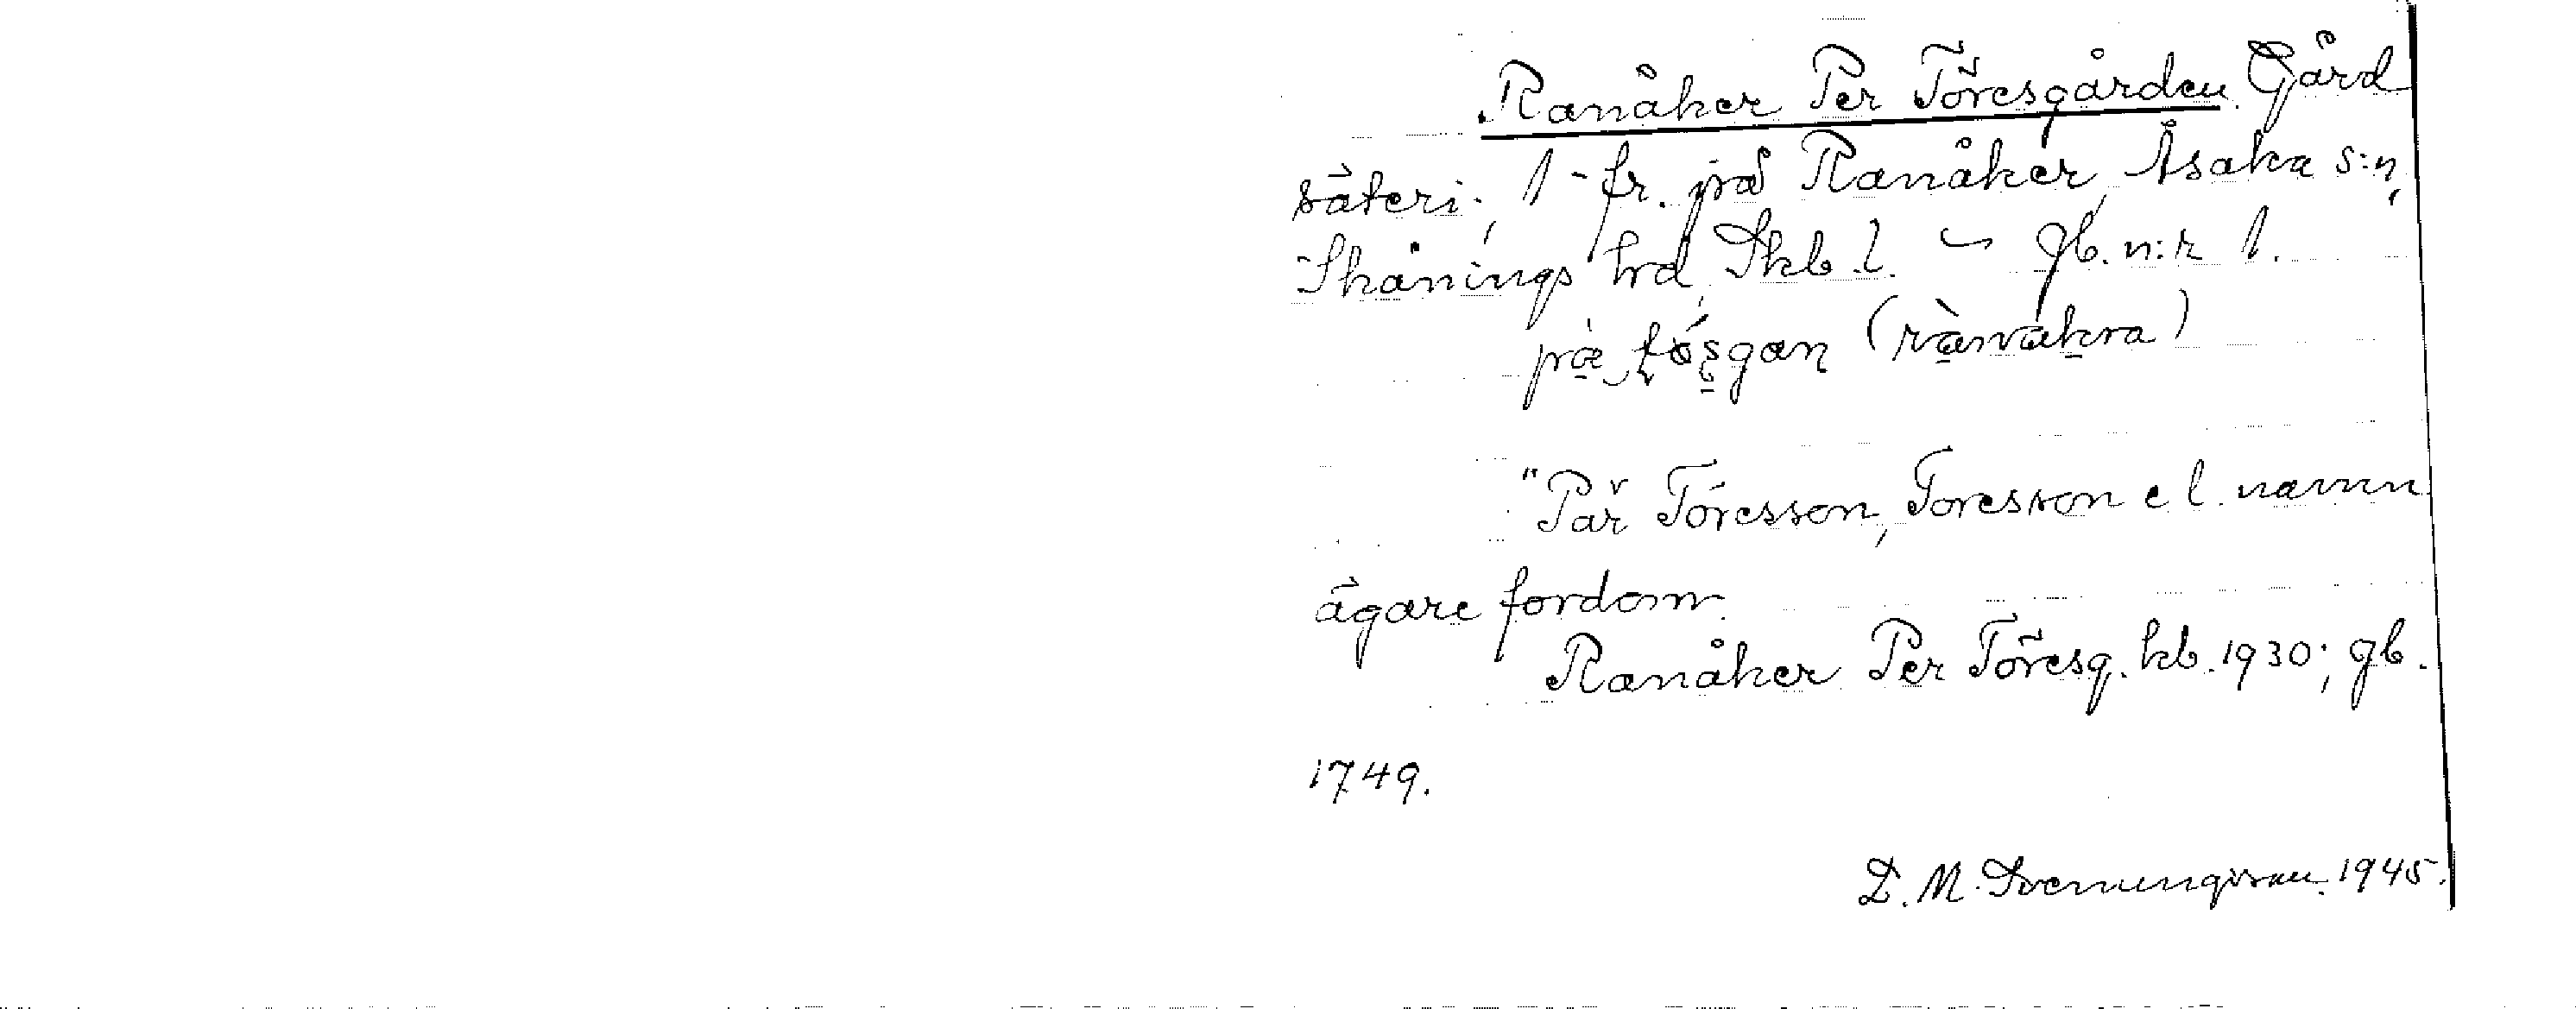 Ranåker Per Töresgården. Gård
säteri; 1 fr. på Ranåker, Åsaka s:n,
Skånings hrd, Skb. l. gb. n:r 1.
"Pär Töresson, Toresson el. namn
ägare fordom.
Ranåker Per Töresg. kb. 1930; gb.
1749.
D. M. Svenungsson. 1945.